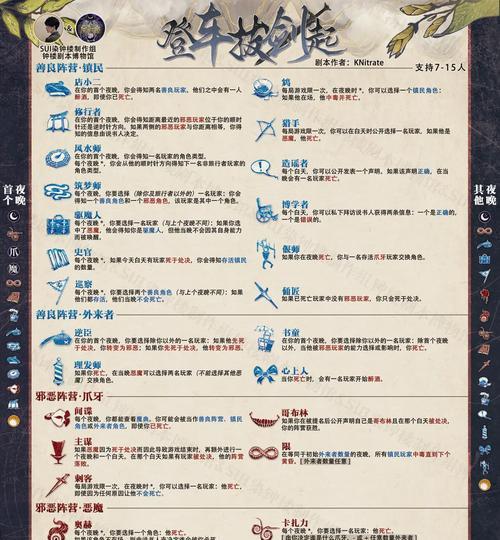 SUI染钟楼制作组
钟楼剧本博物馆
登车拔剑起
剧本作者：KNitrate
支持7-15人
善良阵营·镇民
店小二
在你的首个夜晚，你会得知两名善良玩家，他们之中会有一人
醉酒，即使你已死亡。
修行者
在你的首个夜晚，你会得知距离最近的邪恶玩家位于你的顺时
针还是逆时针方向。如果两侧的邪恶玩家与你距离相等，你得
知的信息由说书人决定。
风水师
在你的首个夜晚，你会得知一名玩家的角色类型。
每个夜晚*，你会从他的顺时针方向得知下一名非旅行者玩家的
角色类型。
筑梦师
每个夜晚，你要选择（除你及旅行者以外的）一名玩家：你会
得知一个善良角色和一个邪恶角色，该玩家是其中一个角色。
驱魔人
每个夜晚*，你要选择一名玩家（与上个夜晚不同）：如果你选
中了恶魔，他会得知你是驱魔人，但他当晚不会因其自身能力
而被唤醒。
史官
每个夜晚*，如果今天白天有玩家死于处决，你会得知存活镇民
的数量。
巡察
每个夜晚*，你要选择两个善良角色（与上个夜晚不同）：如果
他们都存活，他们当晚不会死亡。
鸩
每局游戏限一次，在夜晚时*，你可以选择一个镇民角色：
如果他在场，他中毒并死亡。
猎手
每局游戏限一次，你可以在白天时公开选择一名玩家：如果他是
恶魔，他死亡。
造谣者
每个白天，你可以公开发表一个声明。如果该声明正确，在当
晚会有一名玩家死亡。
博学者
每个白天，你可以私下拜访说书人获得两条信息：一个是正确的，
一个是错误的。
偃师
如果你在夜晚死亡，你与一名存活爪牙玩家交换角色。
俑匠
如果已死亡玩家中没有邪恶玩家，你只会死于处决。
善良阵营·外来者
逆臣
在你的首个夜晚，你要选择除你以外的一名玩家：如果他先死
于处决，你转变为邪恶；如果你先死于处决，他转变为邪恶。
理发师
如果你死亡，在当晚恶魔可以选择两名玩家（不能选择其他恶
魔）交换角色。
书童
在你的首个夜晚，你要选择除你以外的一名玩家：除首个夜晚
以外，当他被邪恶玩家的能力选择或影响时，你死亡。
心上人
当你死亡时，会有一名玩家开始醉酒。
邪恶阵营·爪牙
间谍
每个夜晚，你都能查看魔典。你可能会被当作善良阵营、镇民
角色或外来者角色，即使你已死亡。
主谋
如果恶魔因为死于处决而因此导致游戏结束时，再额外进行一
个夜晚和一个白天。在那个白天如果有玩家被处决，他的阵营
落败。
刺客
每局游戏限一次，在夜晚时*，你可以选择一名玩家：他死亡，
即使因为任何原因让他不会死亡。
哥布林
如果你在被提名后公开声明自己是哥布林且在那个白天被处决，
你的阵营获胜。
限
在等同于初始外来者数量的夜晚，所有镇民玩家中毒直到下个
黄昏。[外来者数量任意]
邪恶阵营·恶魔
奥赫
每个夜晚*，你要选择一个角色：他死亡。
卡扎力
首个夜晚
爪
魔
其他夜晚